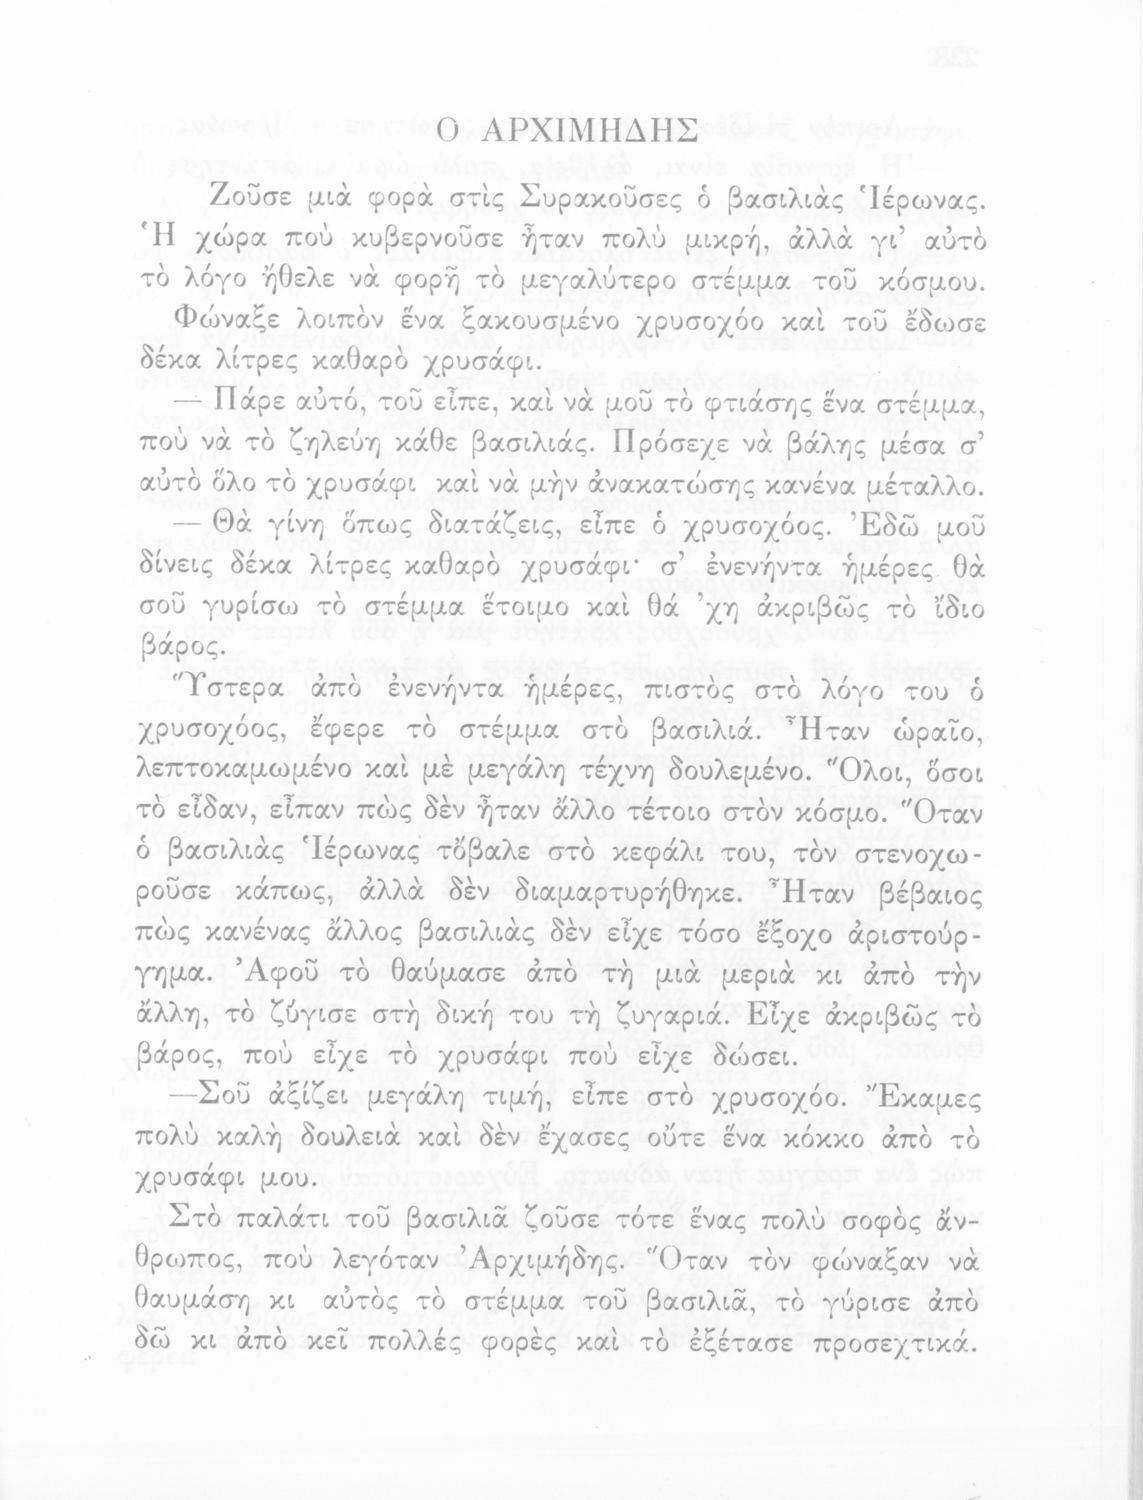 Ο ΑΡΧΙΜΗΔΗΣ
Ζοῦσε μιὰ φορὰ στὶς Συρακοῦσες ὁ βασιλιὰς Ἱέρωνας.
Ἡ χώρα ποὺ κυβερνοῦσε ἦταν πολὺ μικρή, ἀλλὰ γι’ αὐτὸ
τὸ λόγο ἤθελε νὰ φορῇ τὸ μεγαλύτερο στέμμα τοῦ κόσμου.
Φώναξε λοιπὸν ἕνα ξακουσμένο χρυσοχόο καὶ τοῦ ἔδωσε
δέκα λίτρες καθαρὸ χρυσάφι.
— Πάρε αὐτό, τοῦ εἶπε, καὶ νὰ μοῦ τὸ φτιάσης ἕνα στέμμα,
ποὺ νὰ τὸ ζηλεύη κάθε βασιλιάς. Πρόσεχε νὰ βάλης μέσα σ’
αὐτὸ ὅλο τὸ χρυσάφι καὶ νὰ μὴν ἀνακατώσης κανένα μέταλλο.
— Θὰ γίνη ὅπως διατάζεις, εἶπε ὁ χρυσοχόος. Ἐδῶ μοῦ
δίνεις δέκα λίτρες καθαρὸ χρυσάφι· σ’ ἐνενήντα ἡμέρες θὰ
σοῦ γυρίσω τὸ στέμμα ἕτοιμο καὶ θά ’χη ἀκριβῶς τὸ ἴδιο
βάρος.
Ὕστερα ἀπὸ ἐνενήντα ἡμέρες, πιστὸς στὸ λόγο του ὁ
χρυσοχόος, ἔφερε τὸ στέμμα στὸ βασιλιά. Ἦταν ὡραῖο,
λεπτοκαμωμένο καὶ μὲ μεγάλη τέχνη δουλεμένο. Ὅλοι, ὅσοι
τὸ εἶδαν, εἶπαν πὼς δὲν ἦταν ἄλλο τέτοιο στὸν κόσμο. Ὅταν
ὁ βασιλιὰς Ἱέρωνας τὄβαλε στὸ κεφάλι του, τὸν στενοχω-
ροῦσε κάπως, ἀλλὰ δὲν διαμαρτυρήθηκε. Ἦταν βέβαιος
πὼς κανένας ἄλλος βασιλιὰς δὲν εἶχε τόσο ἔξοχο ἀριστούρ-
γημα. Ἀφοῦ τὸ θαύμασε ἀπὸ τὴ μιὰ μεριὰ κι ἀπὸ τὴν
ἄλλη, τὸ ζύγισε στὴ δική του τὴ ζυγαριά. Εἶχε ἀκριβῶς τὸ
βάρος, ποὺ εἶχε τὸ χρυσάφι ποὺ εἶχε δώσει.
—Σοῦ ἀξίζει μεγάλη τιμή, εἶπε στὸ χρυσοχόο. Ἔκαμες
πολὺ καλὴ δουλειὰ καὶ δὲν ἔχασες οὔτε ἕνα κόκκο ἀπὸ τὸ
χρυσάφι μου.
Στὸ παλάτι τοῦ βασιλιᾶ ζοῦσε τότε ἕνας πολὺ σοφὸς ἄν-
θρωπος, ποὺ λεγόταν Ἀρχιμήδης. Ὅταν τὸν φώναξαν νὰ
θαυμάση κι αὐτὸς τὸ στέμμα τοῦ βασιλιᾶ, τὸ γύρισε ἀπὸ
δῶ κι ἀπὸ κεῖ πολλές φορὲς καὶ τὸ ἐξέτασε προσεχτικά.